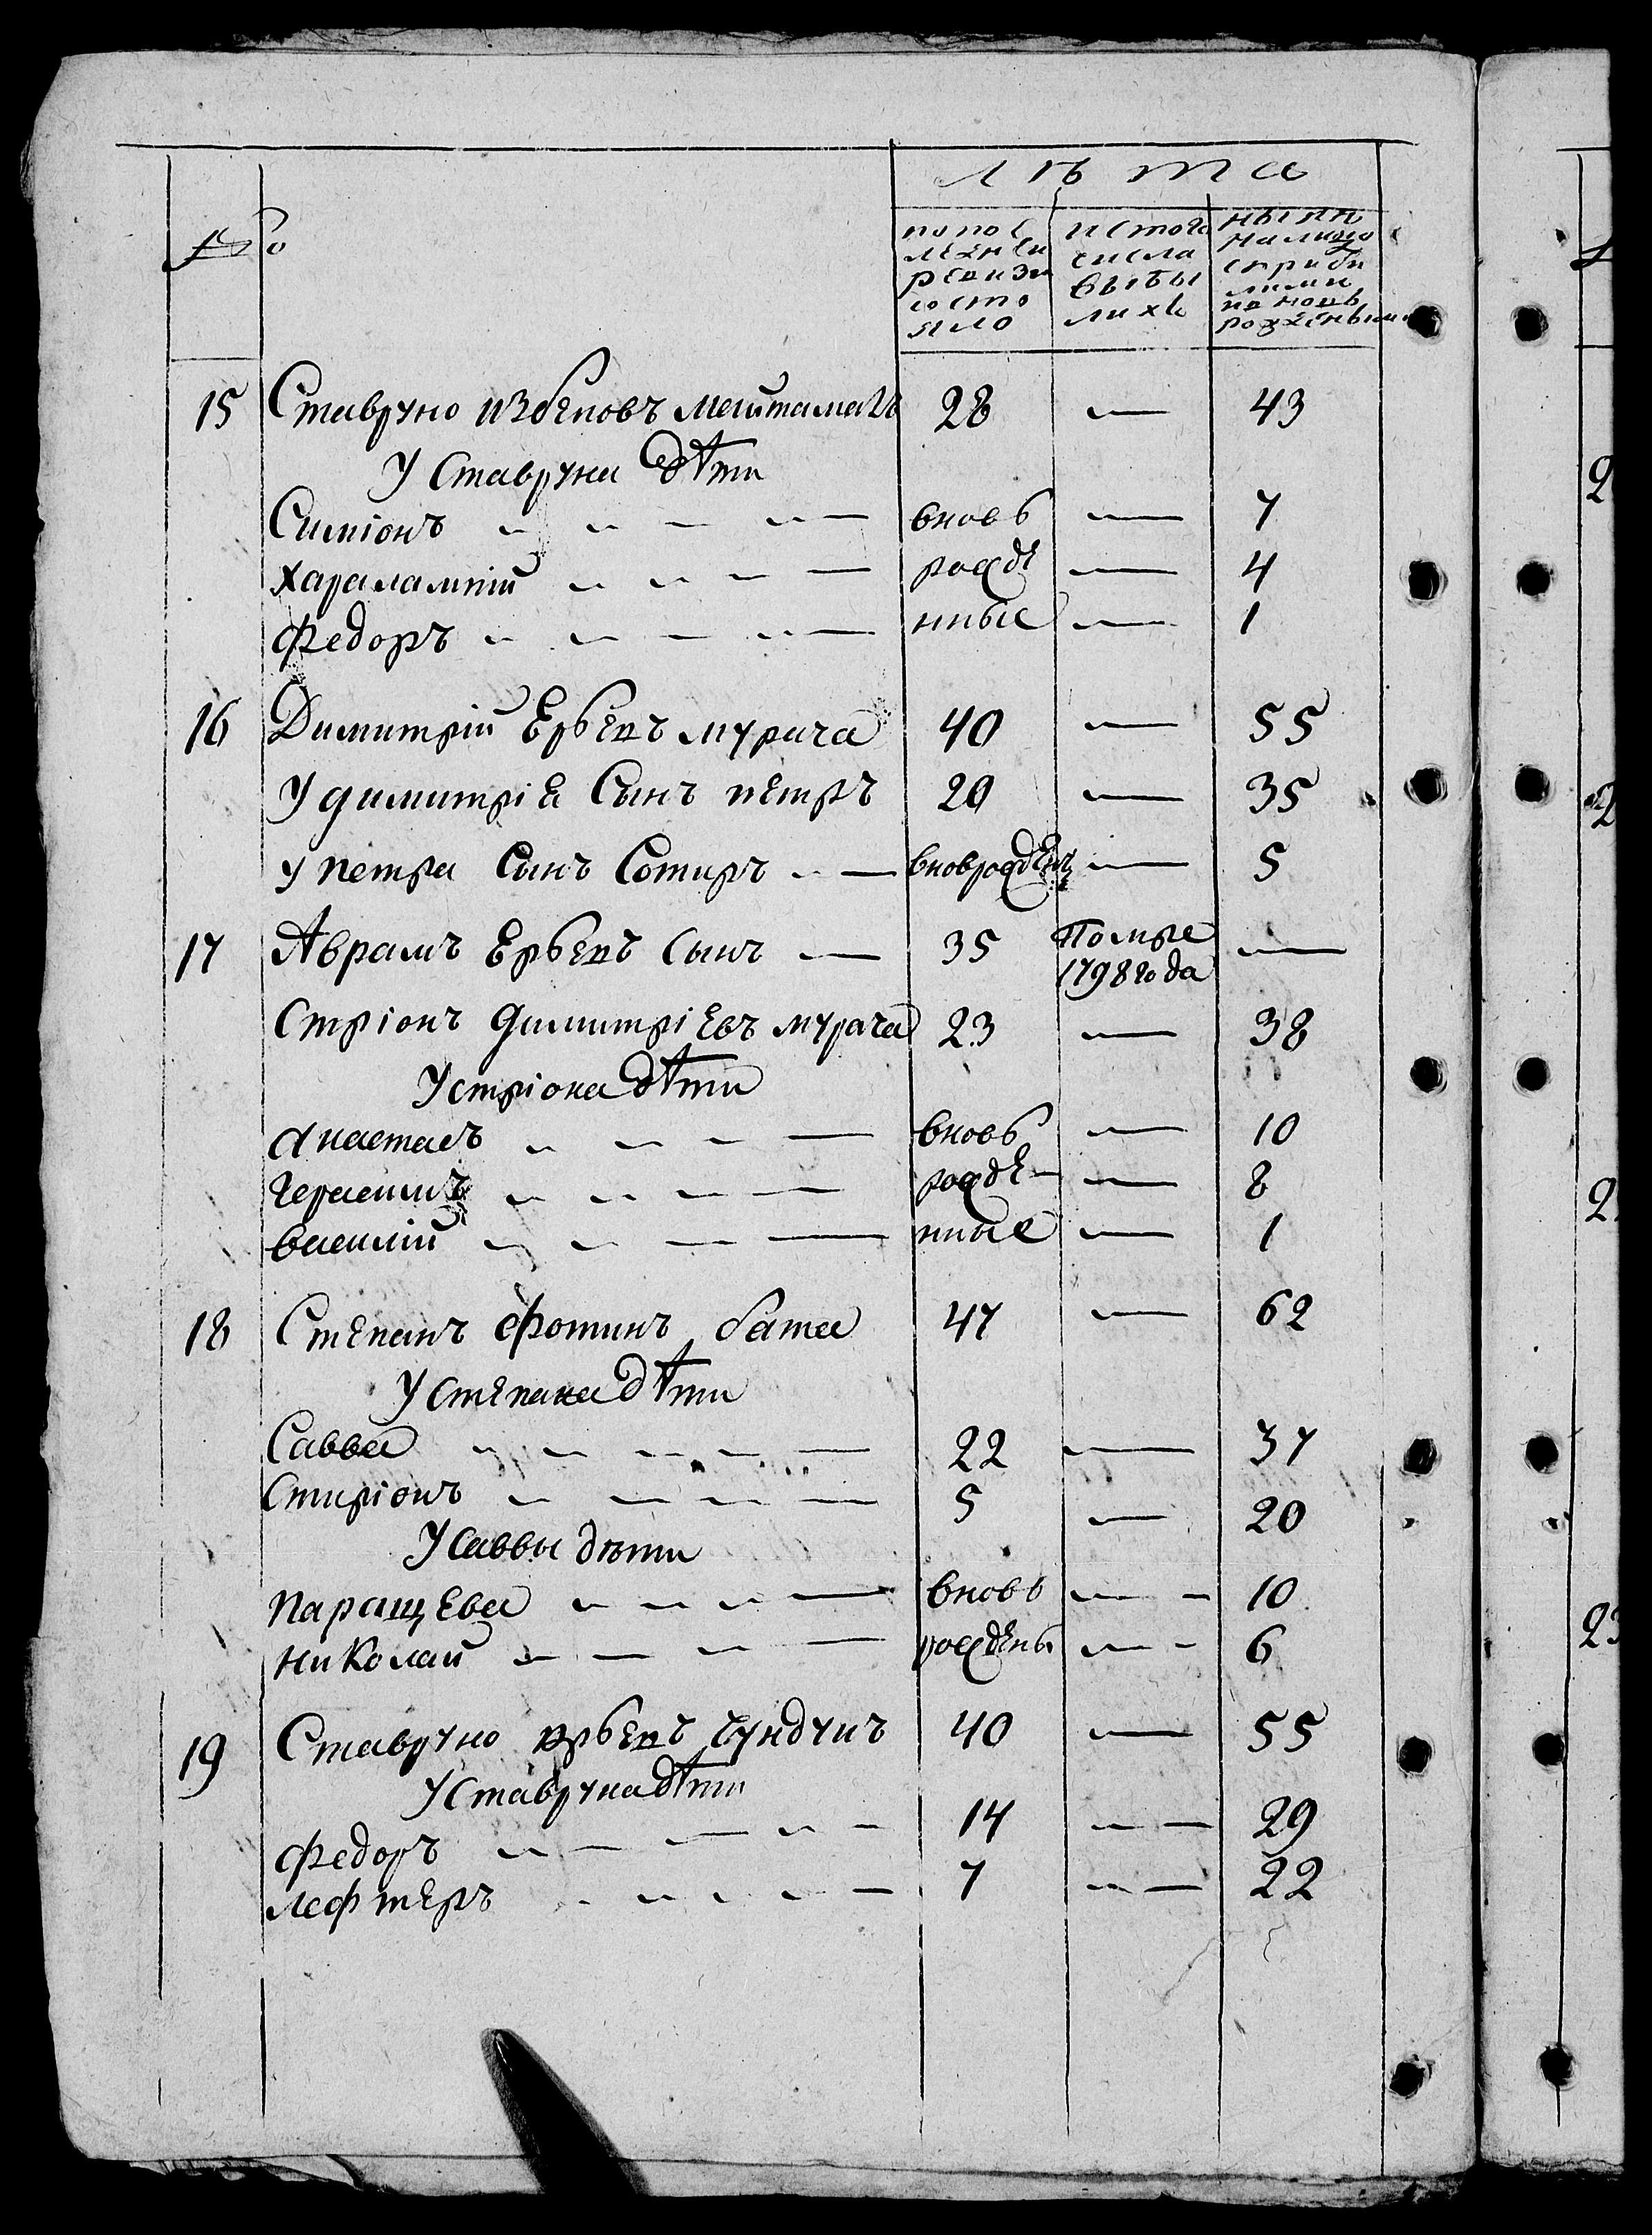 Лѣта
№
попос
лѣнѣи
ревизи
состо
яло
истого
числа
выбы
лихъ
нынѣ
налицо
сприбы
лыми
и новь
рожденными
15 Ставруно Избеновъ 28 — 43
У Ставруна дѣти
Симіонъ вновь — 7
Харалампій рожде — 4
Федоръ нные — 1
16 Димитрій Ербепъ мурача 40 — 55
У димитрія Сынъ петръ 20 — 35
У петра Сынъ Сотиръ — вноврожденъ — 5
17 Аврамъ Ербепъ Сынъ — 35 Помре —
1798 года
Стріонъ Димитріевъ мурача 23 — 38
У стріона дѣти
Анастасъ вновь — 10
Герасимъ рожде — 8
Василій нные — 1
18 Степанъ Фотинъ бата 47 — 62
У Степана дѣти
Савва 22 — 37
Стиріонъ 5 — 20
У Саввы дѣти
Паращева вновь — 10
Николай рождены — 6
19 Ставруно 40 — 55
У Ставруна дѣти
Федоръ 14 — 29
Лефтеръ 7 — 22